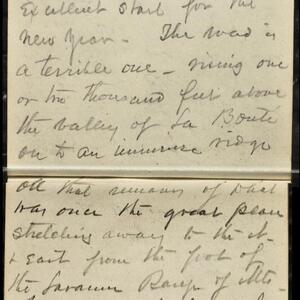 Excellent start for the
New Year – The road is
a terrible one – rising one
or two thousand feet above
the valley of La Bonté
on to an immense ridge
all that remains of what
was once the great plain
stretching away to the N.
& East from the foot of
the Laramie Range of Mts.